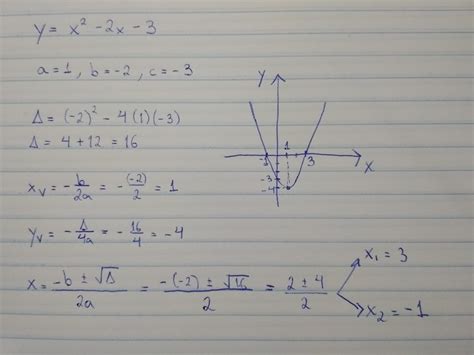 y = x² - 2x - 3
a = 1 , b = -2 , c = -3
Δ = (-2)² - 4(1)(-3)
Δ = 4 + 12 = 16
x_v = -b/2a = -(-2)/2 = 1
y_v = -Δ/4a = -16/4 = -4
x = (-b ± √Δ)/2a = (-(-2) ± √16)/2 = (2 ± 4)/2
x₁ = 3
x₂ = -1
y
1
-1
3
x
-3
-4